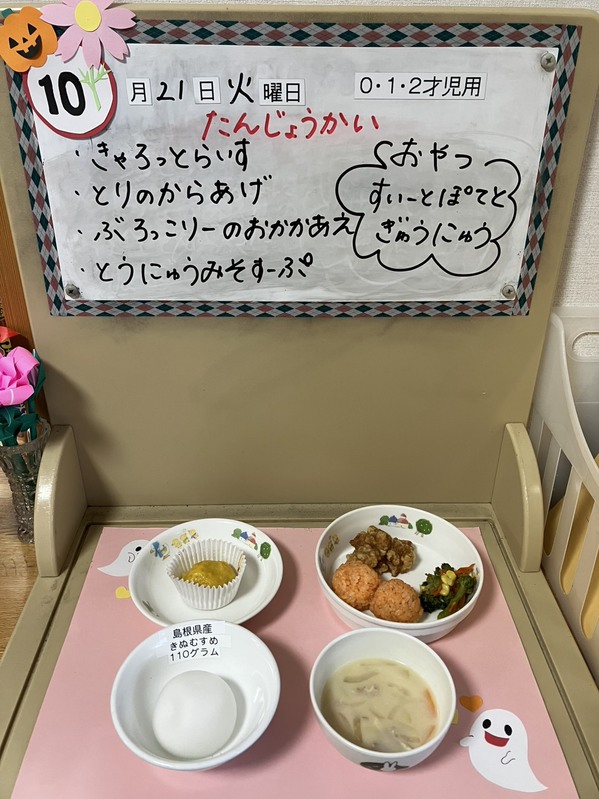 10月21日火曜日
0・1・2才児用
たんじょうかい
・きゃろっとらいす
・とりのからあげ
・ぶろっこりーのおかかあえ
・とうにゅうみそすーぷ
おやつ
すいーとぽてと
ぎゅうにゅう
島根県産
きぬむすめ
110グラム